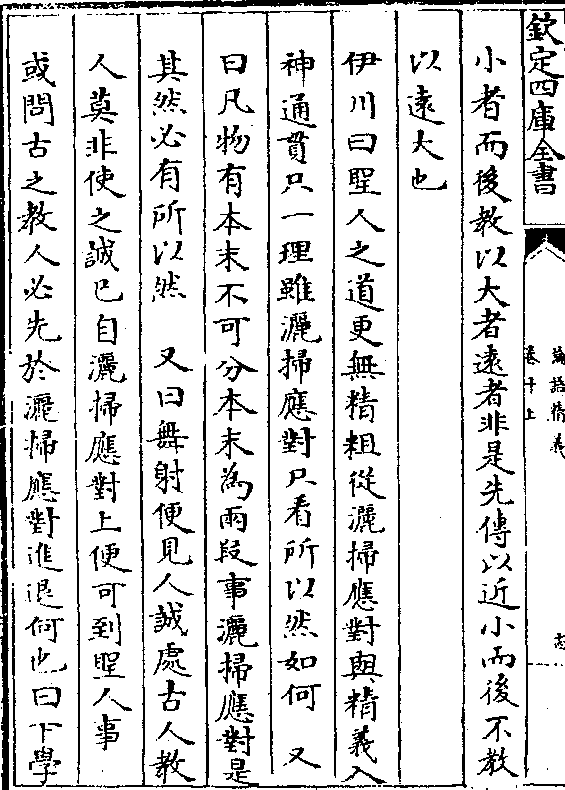 欽定四庫全書
論語精義
卷十上
小者而後教以大者遠者非是先傳以近小而後不教
以遠大也
伊川曰聖人之道更無精粗從灑掃應對與精義入
神通貫只一理雖灑掃應對只看所以然如何 又
曰凡物有本末不可分本末為兩段事灑掃應對是
其然必有所以然 又曰舞射便見人誠處古人教
人莫非使之誠已自灑掃應對上便可到聖人事
或問古之教人必先於灑掃應對進退何也曰下學